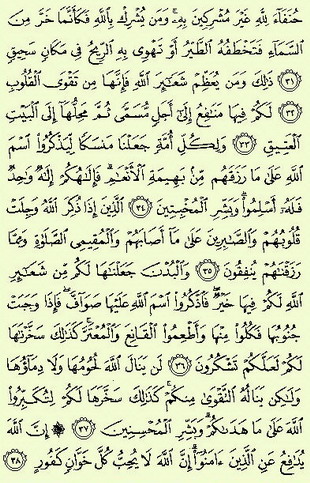 حُنَفَآءَ لِلَّهِ غَيْرَ مُشْرِكِينَ بِهِۦ ۚ وَمَن يُشْرِكْ بِٱللَّهِ فَكَأَنَّمَا خَرَّ مِنَ
ٱلسَّمَآءِ فَتَخْطَفُهُ ٱلطَّيْرُ أَوْ تَهْوِى بِهِ ٱلرِّيحُ فِى مَكَانٍ سَحِيقٍ
﴿٣١﴾ ذَٰلِكَ وَمَن يُعَظِّمْ شَعَـٰٓئِرَ ٱللَّهِ فَإِنَّهَا مِن تَقْوَى ٱلْقُلُوبِ
﴿٣٢﴾ لَكُمْ فِيهَا مَنَـٰفِعُ إِلَىٰٓ أَجَلٍ مُّسَمًّى ثُمَّ مَحِلُّهَآ إِلَى ٱلْبَيْتِ
ٱلْعَتِيقِ ﴿٣٣﴾ وَلِكُلِّ أُمَّةٍ جَعَلْنَا مَنسَكًا لِّيَذْكُرُوا۟ ٱسْمَ
ٱللَّهِ عَلَىٰ مَا رَزَقَهُم مِّنۢ بَهِيمَةِ ٱلْأَنْعَـٰمِ ۗ فَإِلَـٰهُكُمْ إِلَـٰهٌ وَٰحِدٌ
فَلَهُۥٓ أَسْلِمُوا۟ ۗ وَبَشِّرِ ٱلْمُخْبِتِينَ ﴿٣٤﴾ ٱلَّذِينَ إِذَا ذُكِرَ ٱللَّهُ وَجِلَتْ
قُلُوبُهُمْ وَٱلصَّـٰبِرِينَ عَلَىٰ مَآ أَصَابَهُمْ وَٱلْمُقِيمِى ٱلصَّلَوٰةِ وَمِمَّا
رَزَقْنَـٰهُمْ يُنفِقُونَ ﴿٣٥﴾ وَٱلْبُدْنَ جَعَلْنَـٰهَا لَكُم مِّن شَعَـٰٓئِرِ
ٱللَّهِ لَكُمْ فِيهَا خَيْرٌ ۖ فَٱذْكُرُوا۟ ٱسْمَ ٱللَّهِ عَلَيْهَا صَوَآفَّ ۖ فَإِذَا وَجَبَتْ
جُنُوبُهَا فَكُلُوا۟ مِنْهَا وَأَطْعِمُوا۟ ٱلْقَانِعَ وَٱلْمُعْتَرَّ ۚ كَذَٰلِكَ سَخَّرْنَـٰهَا
لَكُمْ لَعَلَّكُمْ تَشْكُرُونَ ﴿٣٦﴾ لَن يَنَالَ ٱللَّهَ لُحُومُهَا وَلَا دِمَآؤُهَا
وَلَـٰكِن يَنَالُهُ ٱلتَّقْوَىٰ مِنكُمْ ۚ كَذَٰلِكَ سَخَّرَهَا لَكُمْ لِتُكَبِّرُوا۟
ٱللَّهَ عَلَىٰ مَا هَدَىٰكُمْ ۗ وَبَشِّرِ ٱلْمُحْسِنِينَ ﴿٣٧﴾ ۞ إِنَّ ٱللَّهَ
يُدَٰفِعُ عَنِ ٱلَّذِينَ ءَامَنُوٓا۟ ۗ إِنَّ ٱللَّهَ لَا يُحِبُّ كُلَّ خَوَّانٍ كَفُورٍ ﴿٣٨﴾